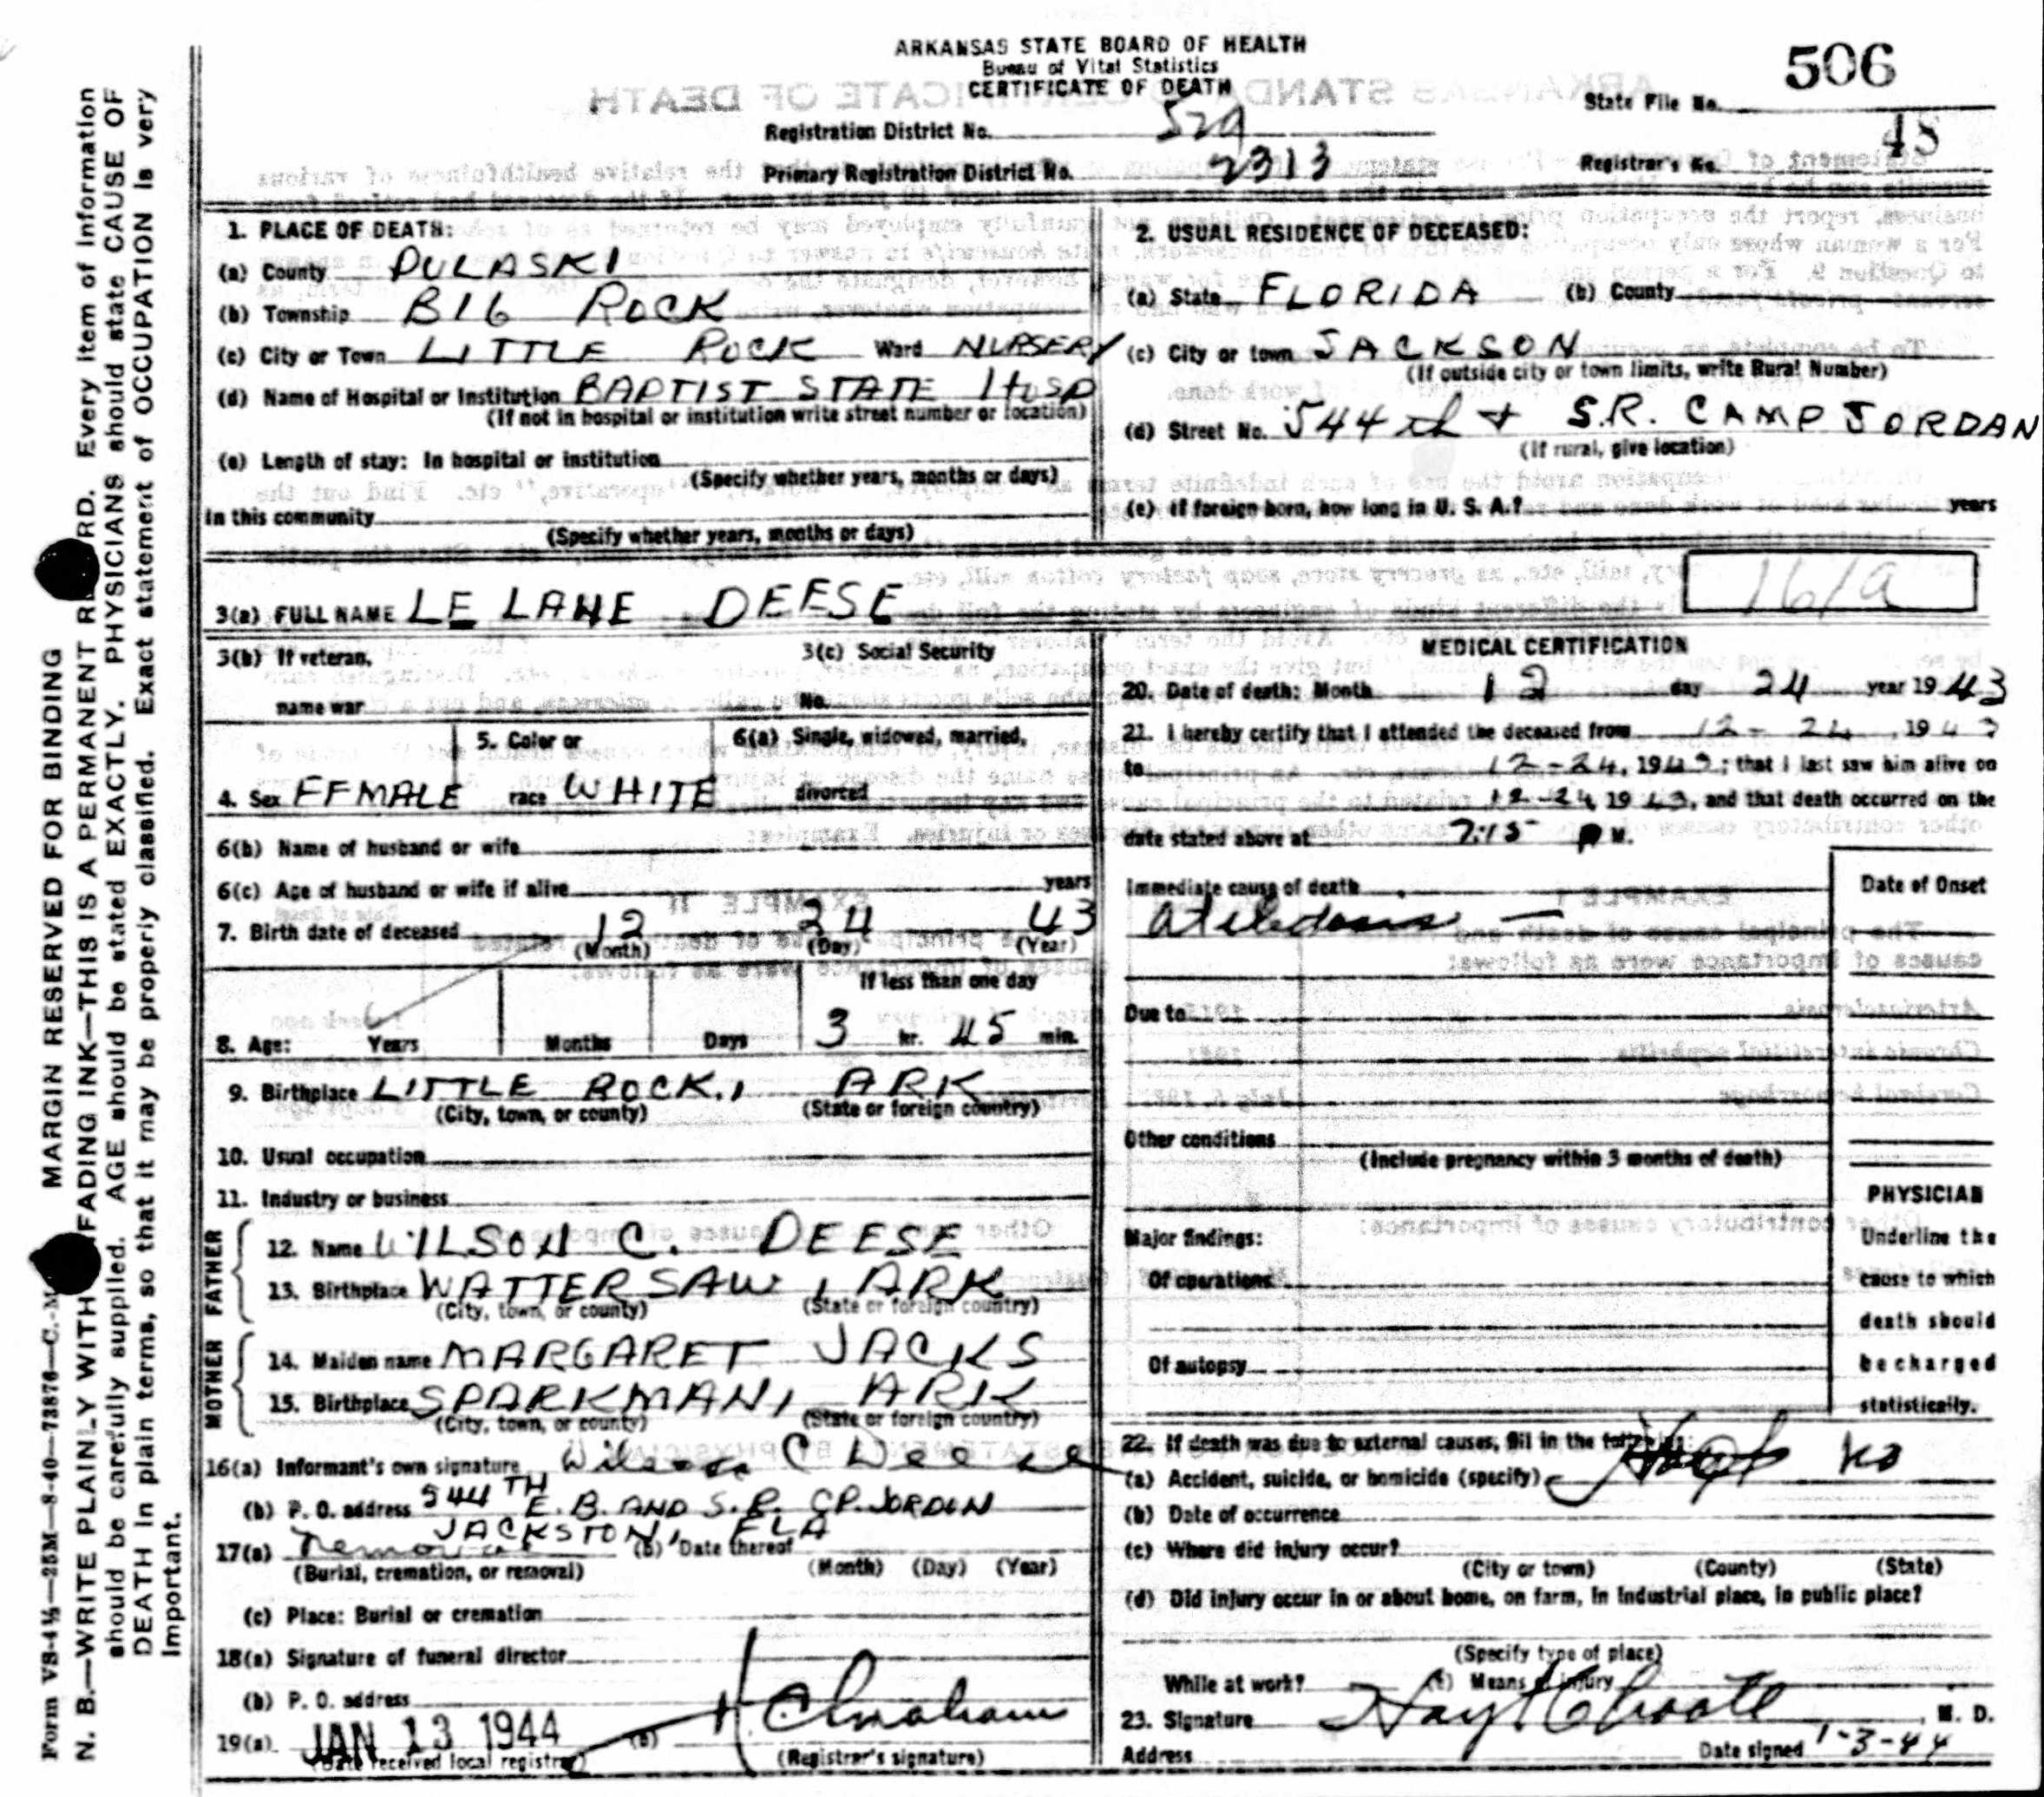 ARKANSAS STATE BOARD OF HEALTH
Bureau of Vital Statistics
CERTIFICATE OF DEATH
506
State File No.
Registration District No.
Registrar's No. 48
Primary Registration District No. 2313
1. PLACE OF DEATH:
(a) County PULASKI
(b) Township BIG ROCK
(c) City or Town LITTLE ROCK Ward NURSERY
(d) Name of Hospital or Institution BAPTIST STATE HOSP
(If not in hospital or institution write street number or location)
(e) Length of stay: In hospital or institution
(Specify whether years, months or days)
In this community
(Specify whether years, months or days)
2. USUAL RESIDENCE OF DECEASED:
(a) State FLORIDA (b) County
(c) City or town JACKSON
(If outside city or town limits, write Rural Number)
(d) Street No. 544th + S.R. CAMP JORDAN
(If rural, give location)
(e) If foreign born, how long in U. S. A.? years
3(a) FULL NAME LE LANE DEESE
161a
3(b) If veteran, 3(c) Social Security
name war No.
5. Color or 6(a) Single, widowed, married,
4. Sex FEMALE race WHITE divorced
6(b) Name of husband or wife
6(c) Age of husband or wife if alive years
7. Birth date of deceased 12 24 43
(Month) (Day) (Year)
If less than one day
8. Age: Years Months Days 3 hr. 45 min.
9. Birthplace LITTLE ROCK, ARK
(City, town, or county) (State or foreign country)
10. Usual occupation
11. Industry or business
FATHER
12. Name WILSON C. DEESE
13. Birthplace WATTERSAW, ARK
(City, town, or county) (State or foreign country)
MOTHER
14. Maiden name MARGARET JACKS
15. Birthplace SPARKMAN, ARK
(City, town, or county) (State or foreign country)
16(a) Informant's own signature Wilson C Deese
(b) P. O. address 544TH E. B. AND S. R. CP. JORDON
JACKSTON, FLA
17(a) removal (b) Date thereof
(Burial, cremation, or removal) (Month) (Day) (Year)
(c) Place: Burial or cremation
18(a) Signature of funeral director
(b) P. O. address
19(a) JAN 13 1944 (b)
(Date received local registrar) (Registrar's signature)
MEDICAL CERTIFICATION
20. Date of death: Month 12 day 24 year 1943
21. I hereby certify that I attended the deceased from 12-24, 1943
to 12-24, 1943; that I last saw him alive on
12-24, 1943, and that death occurred on the
date stated above at 7:15 P M.
Immediate cause of death Date of Onset
atelectasis —
Due to
Other conditions
(Include pregnancy within 3 months of death)
PHYSICIAN
Major findings:
Of operations
Of autopsy
Underline the
cause to which
death should
be charged
statistically.
22. If death was due to external causes, fill in the following:
(a) Accident, suicide, or homicide (specify) no
(b) Date of occurrence
(c) Where did injury occur?
(City or town) (County) (State)
(d) Did injury occur in or about home, on farm, in industrial place, in public place?
(Specify type of place)
While at work? (e) Means of injury
23. Signature Hoyt Choate, M. D.
Address Date signed 1-3-44
MARGIN RESERVED FOR BINDING
N. B.—WRITE PLAINLY WITH UNFADING INK—THIS IS A PERMANENT RECORD. Every item of information
should be carefully supplied. AGE should be stated EXACTLY. PHYSICIANS should state CAUSE OF
DEATH in plain terms, so that it may be properly classified. Exact statement of OCCUPATION is very
important.
Form VS-4½—25M—8-40—73876—C.-M.